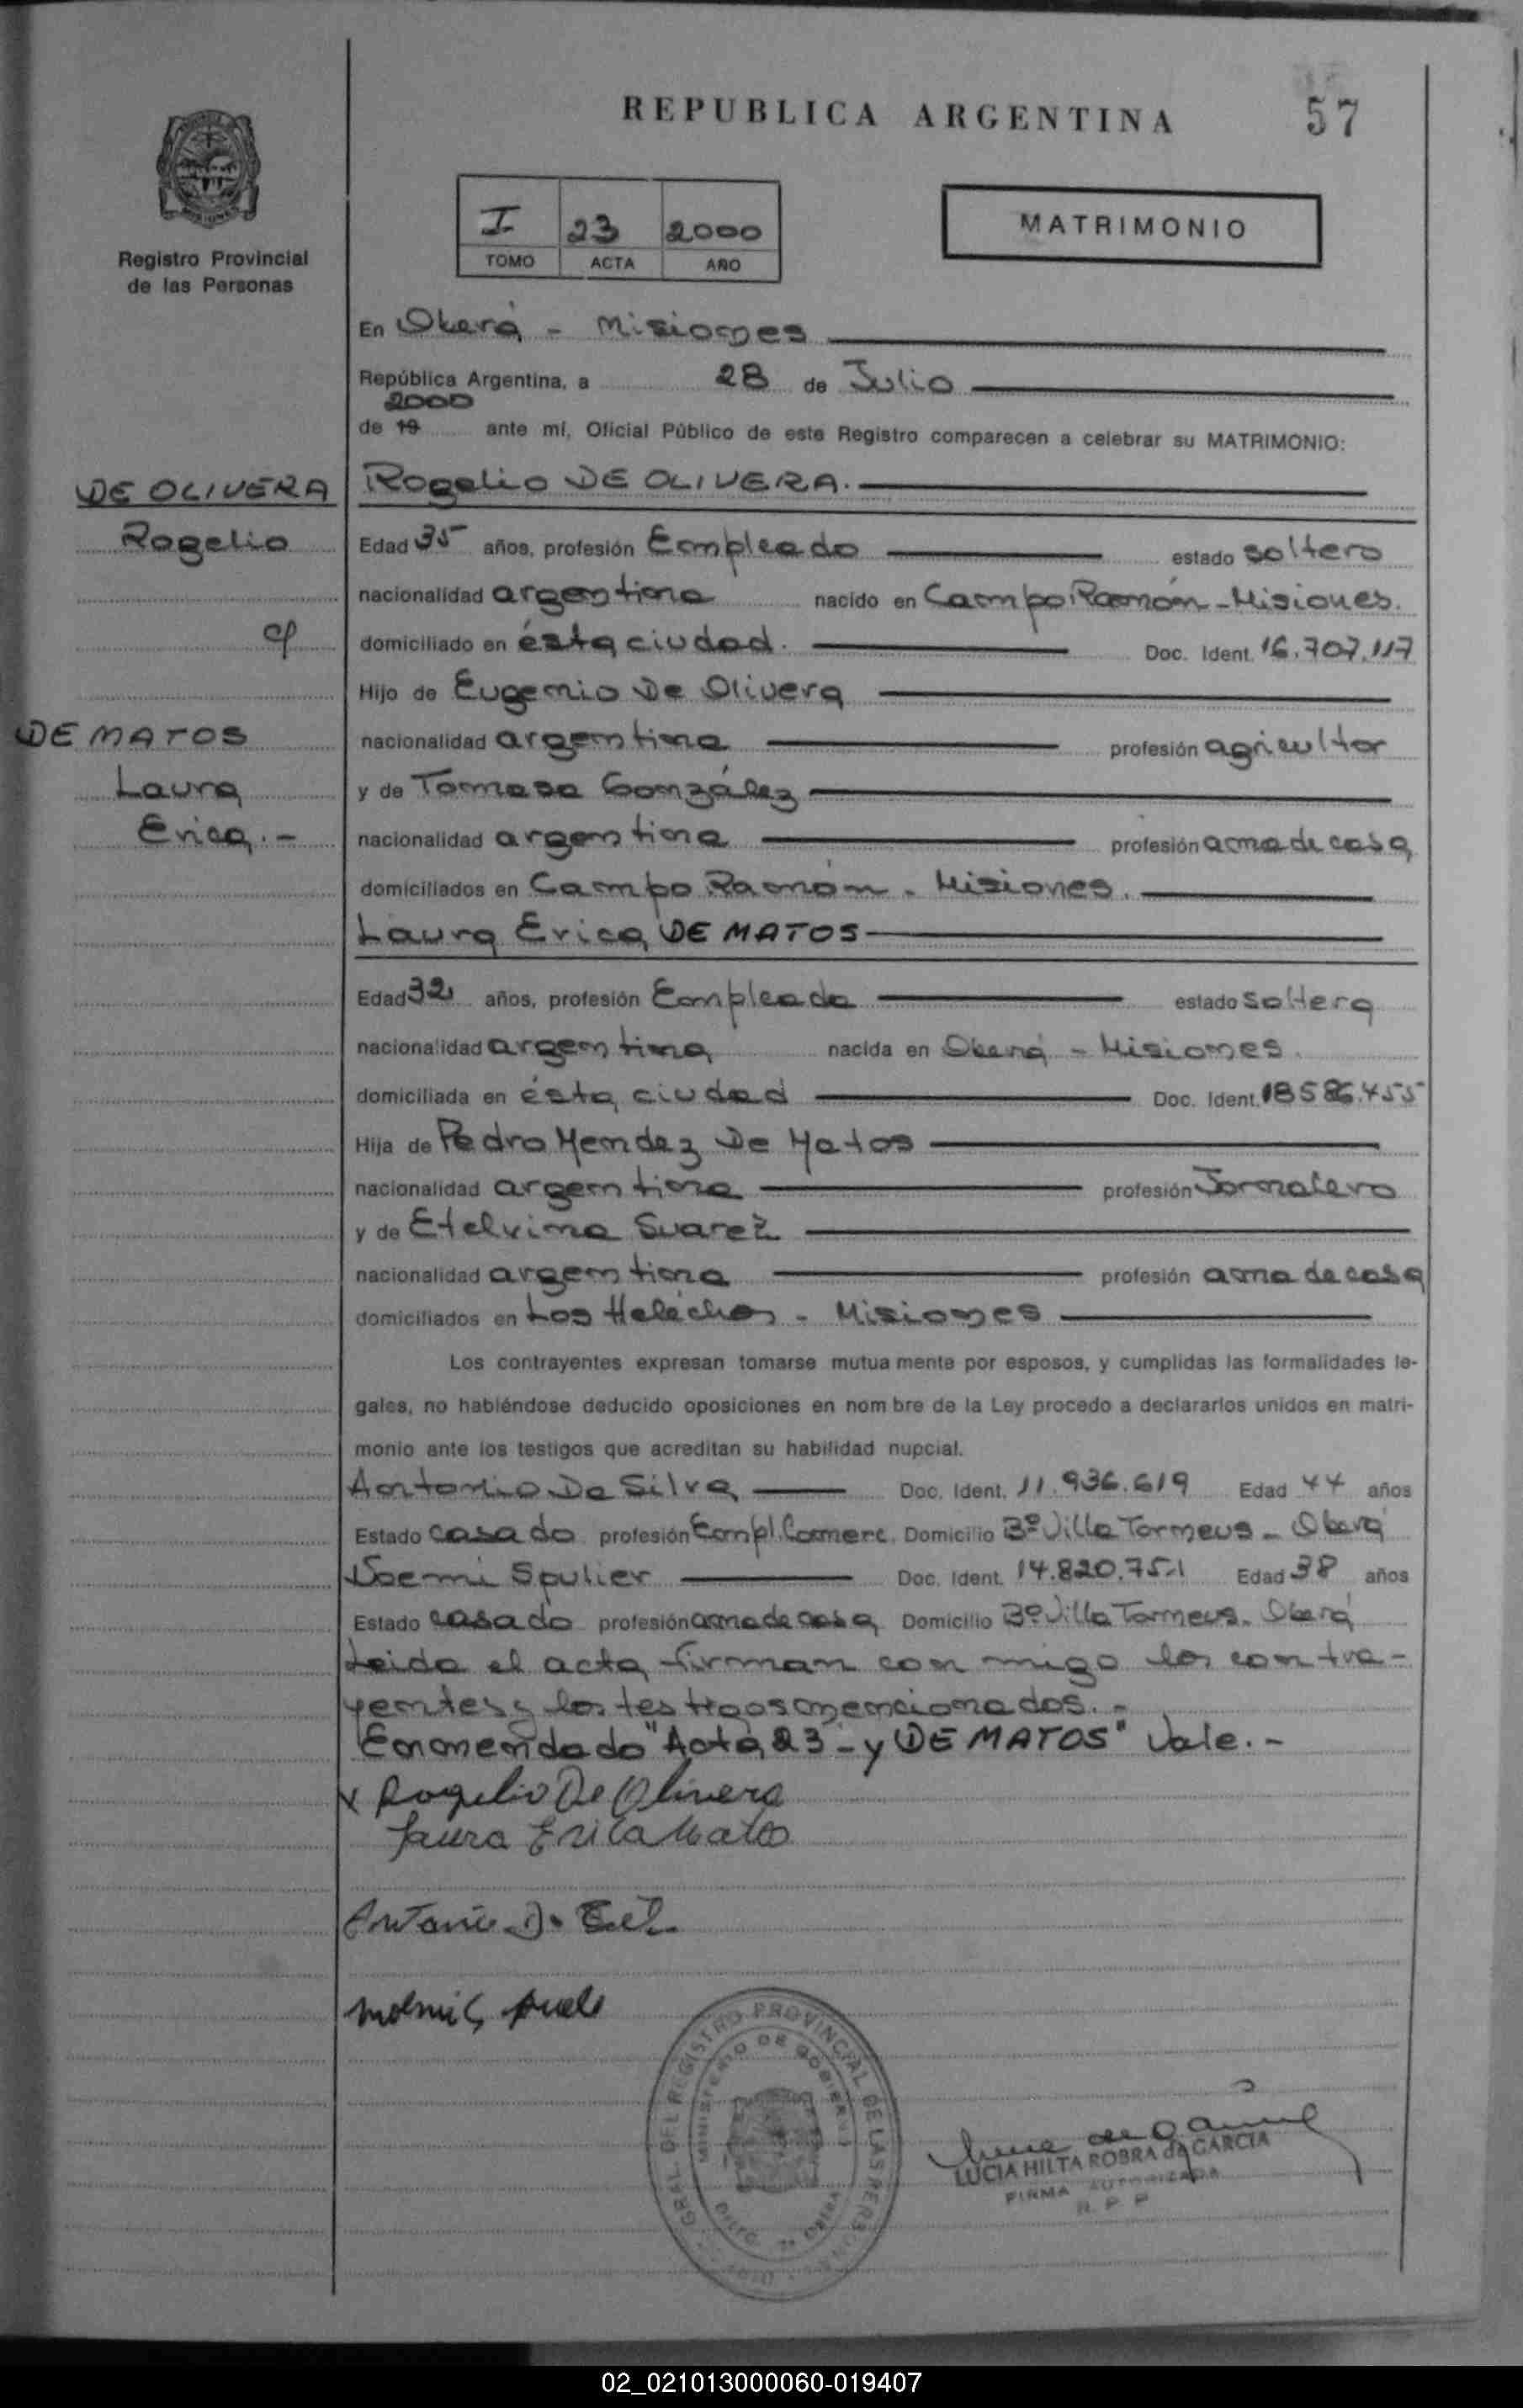 REPUBLICA ARGENTINA
57
Registro Provincial
de las Personas
I 23 2000
TOMO ACTA AÑO
MATRIMONIO
En Oberá - Misiones
República Argentina, a 28 de Julio
2000
de 19 ante mí, Oficial Público de este Registro comparecen a celebrar su MATRIMONIO:
DE OLIVERA
Rogelio
cp
DE MATOS
Laura
Erica.-
Rogelio DE OLIVERA.
Edad 35 años, profesión Empleado estado soltero
nacionalidad argentina nacido en Campo Ramón - Misiones.
domiciliado en ésta ciudad. Doc. Ident. 16.707.117
Hijo de Eugenio De Olivera
nacionalidad argentina profesión agricultor
y de Tomasa González
nacionalidad argentina profesión ama de casa
domiciliados en Campo Ramón - Misiones.
Laura Erica DE MATOS
Edad 32 años, profesión Empleada estado soltera
nacionalidad argentina nacida en Oberá - Misiones.
domiciliada en ésta ciudad Doc. Ident. 18586.455
Hija de Pedro Mendez De Matos
nacionalidad argentina profesión Jornalero
y de Etelvina Suarez
nacionalidad argentina profesión ama de casa
domiciliados en Los Helechos - Misiones
Los contrayentes expresan tomarse mutua mente por esposos, y cumplidas las formalidades le-
gales, no habiéndose deducido oposiciones en nom bre de la Ley procedo a declararlos unidos en matri-
monio ante los testigos que acreditan su habilidad nupcial.
Antonio Da Silva Doc. Ident. 11.936.619 Edad 44 años
Estado casado profesión Empl. Comerc. Domicilio Bº Villa Tormeus - Oberá
Noemi Spulier Doc. Ident. 14.820.751 Edad 38 años
Estado casado profesión ama de casa Domicilio Bº Villa Tormeus - Oberá
Leida el acta firman con migo los contra-
yentes y los testigos mencionados.-
Enmendado "Acta 23 - y DE MATOS" Vale.-
x Rogelio De Olivera
Laura Erica Matos
Antonio Da
GRAL. DEL REGISTRO PROVINCIAL DE LAS PERSONAS
MINISTERIO DE GOBIERNO
LUCIA HILTA ROBRA de GARCIA
FIRMA AUTORIZADA
R. P. P
02_021013000060-019407